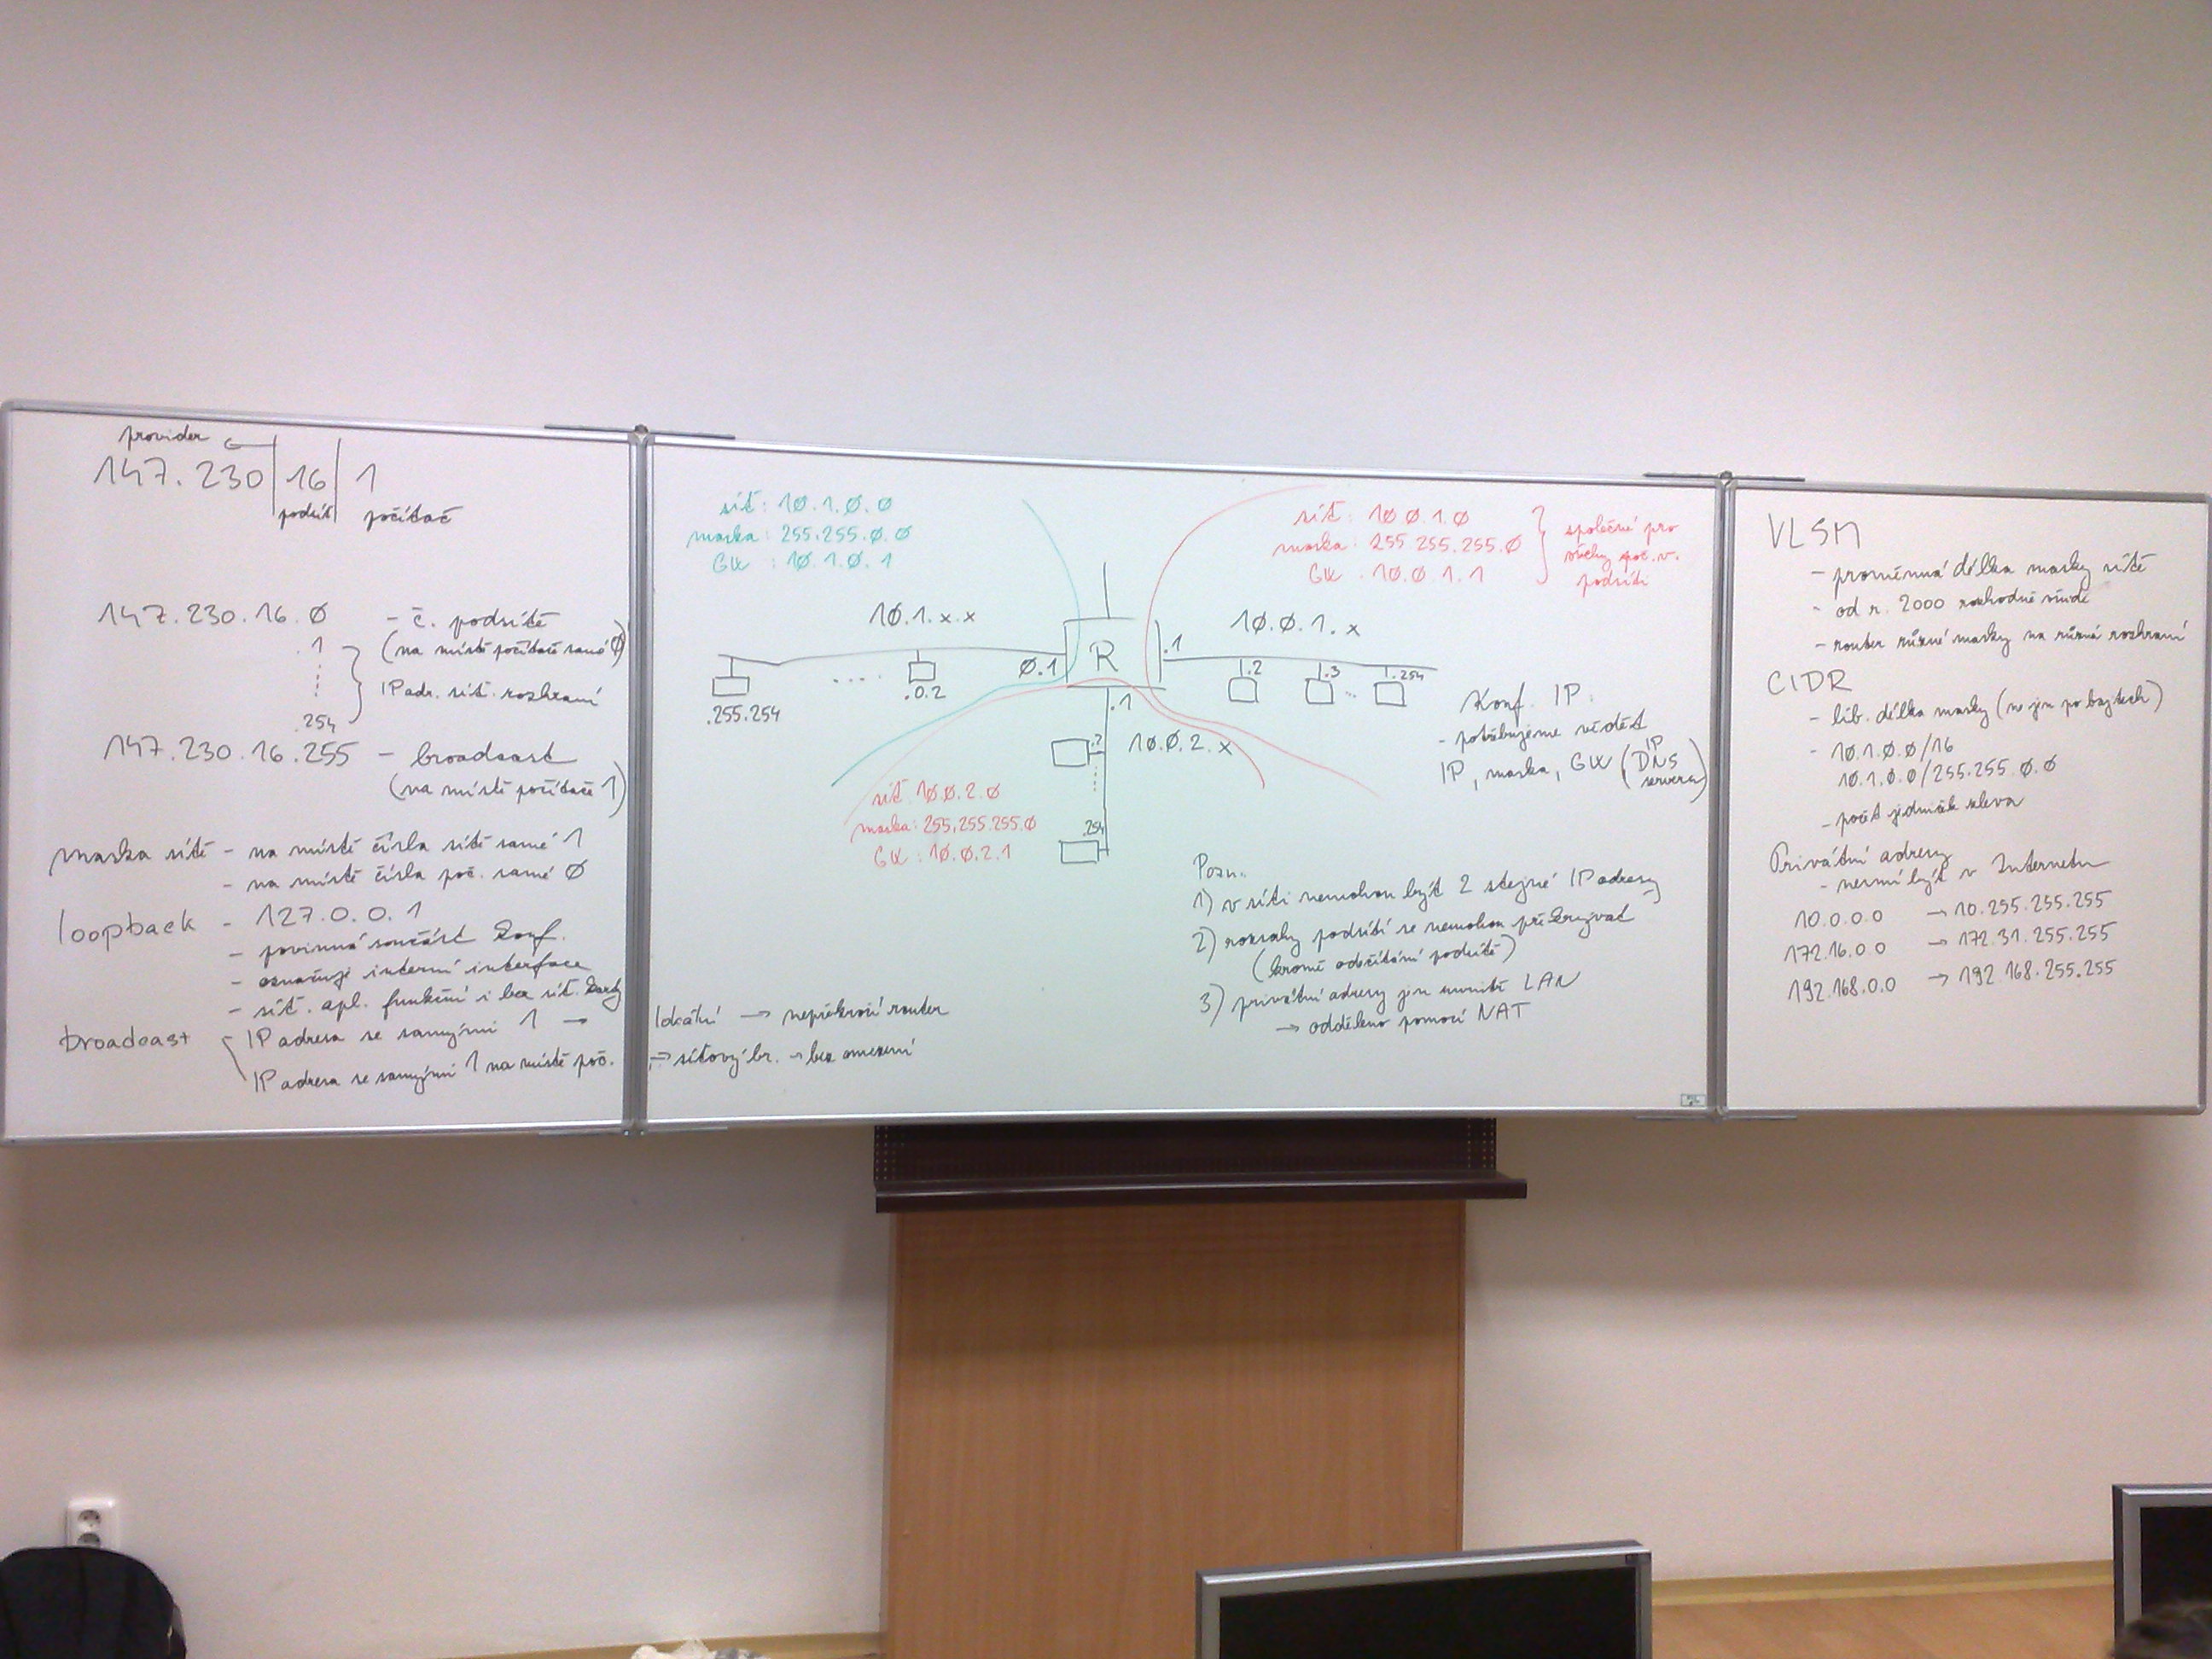 provider
147.230 | 16 | 1
podsíť počítač
147.230.16.0 - č. podsítě
.1 (na místě počítače samé 0)
IP adr. síť. rozhraní
.254
147.230.16.255 - broadcast
(na místě počítače 1)
maska sítě - na místě čísla sítě samé 1
- na místě čísla poč. samé 0
loopback - 127.0.0.1
- povinná součást konf.
- označuje interní interface
- síť. apl. funkční i bez síť. karty
broadcast - IP adresa se samými 1 →
IP adresa se samými 1 na místě poč.
síť: 10.1.0.0
maska: 255.255.0.0
GW: 10.1.0.1
síť: 10.0.1.0
maska: 255.255.255.0
GW: 10.0.1.1
společné pro
všechny poč. v.
podsíti
10.1.x.x
10.0.1.x
R
0.1
.1
.255.254
....
.0.2
.2
.3
...
.254
.1
10.0.2.x
.2
.254
síť: 10.0.2.0
maska: 255.255.255.0
GW: 10.0.2.1
Konf. IP:
- potřebujeme vědět
IP, maska, GW (IP DNS serveru)
Pozn.
1) v síti nemohou být 2 stejné IP adresy
2) rozsahy podsítí se nemohou překrývat
(kromě odečítání podsítě)
3) privátní adresy jen uvnitř LAN
→ odděleno pomocí NAT
lokální → nepřekročí router
→ síťový br. → bez omezení
VLSM
- proměnná délka masky sítě
- od r. 2000 rozhodně všude
- router různé masky na různá rozhraní
CIDR
- lib. délka masky (ne jen po bajtech)
- 10.1.0.0/16
10.1.0.0/255.255.0.0
- počet jedniček zleva
Privátní adresy
- nesmí být v Internetu
10.0.0.0 → 10.255.255.255
172.16.0.0 → 172.31.255.255
192.168.0.0 → 192.168.255.255